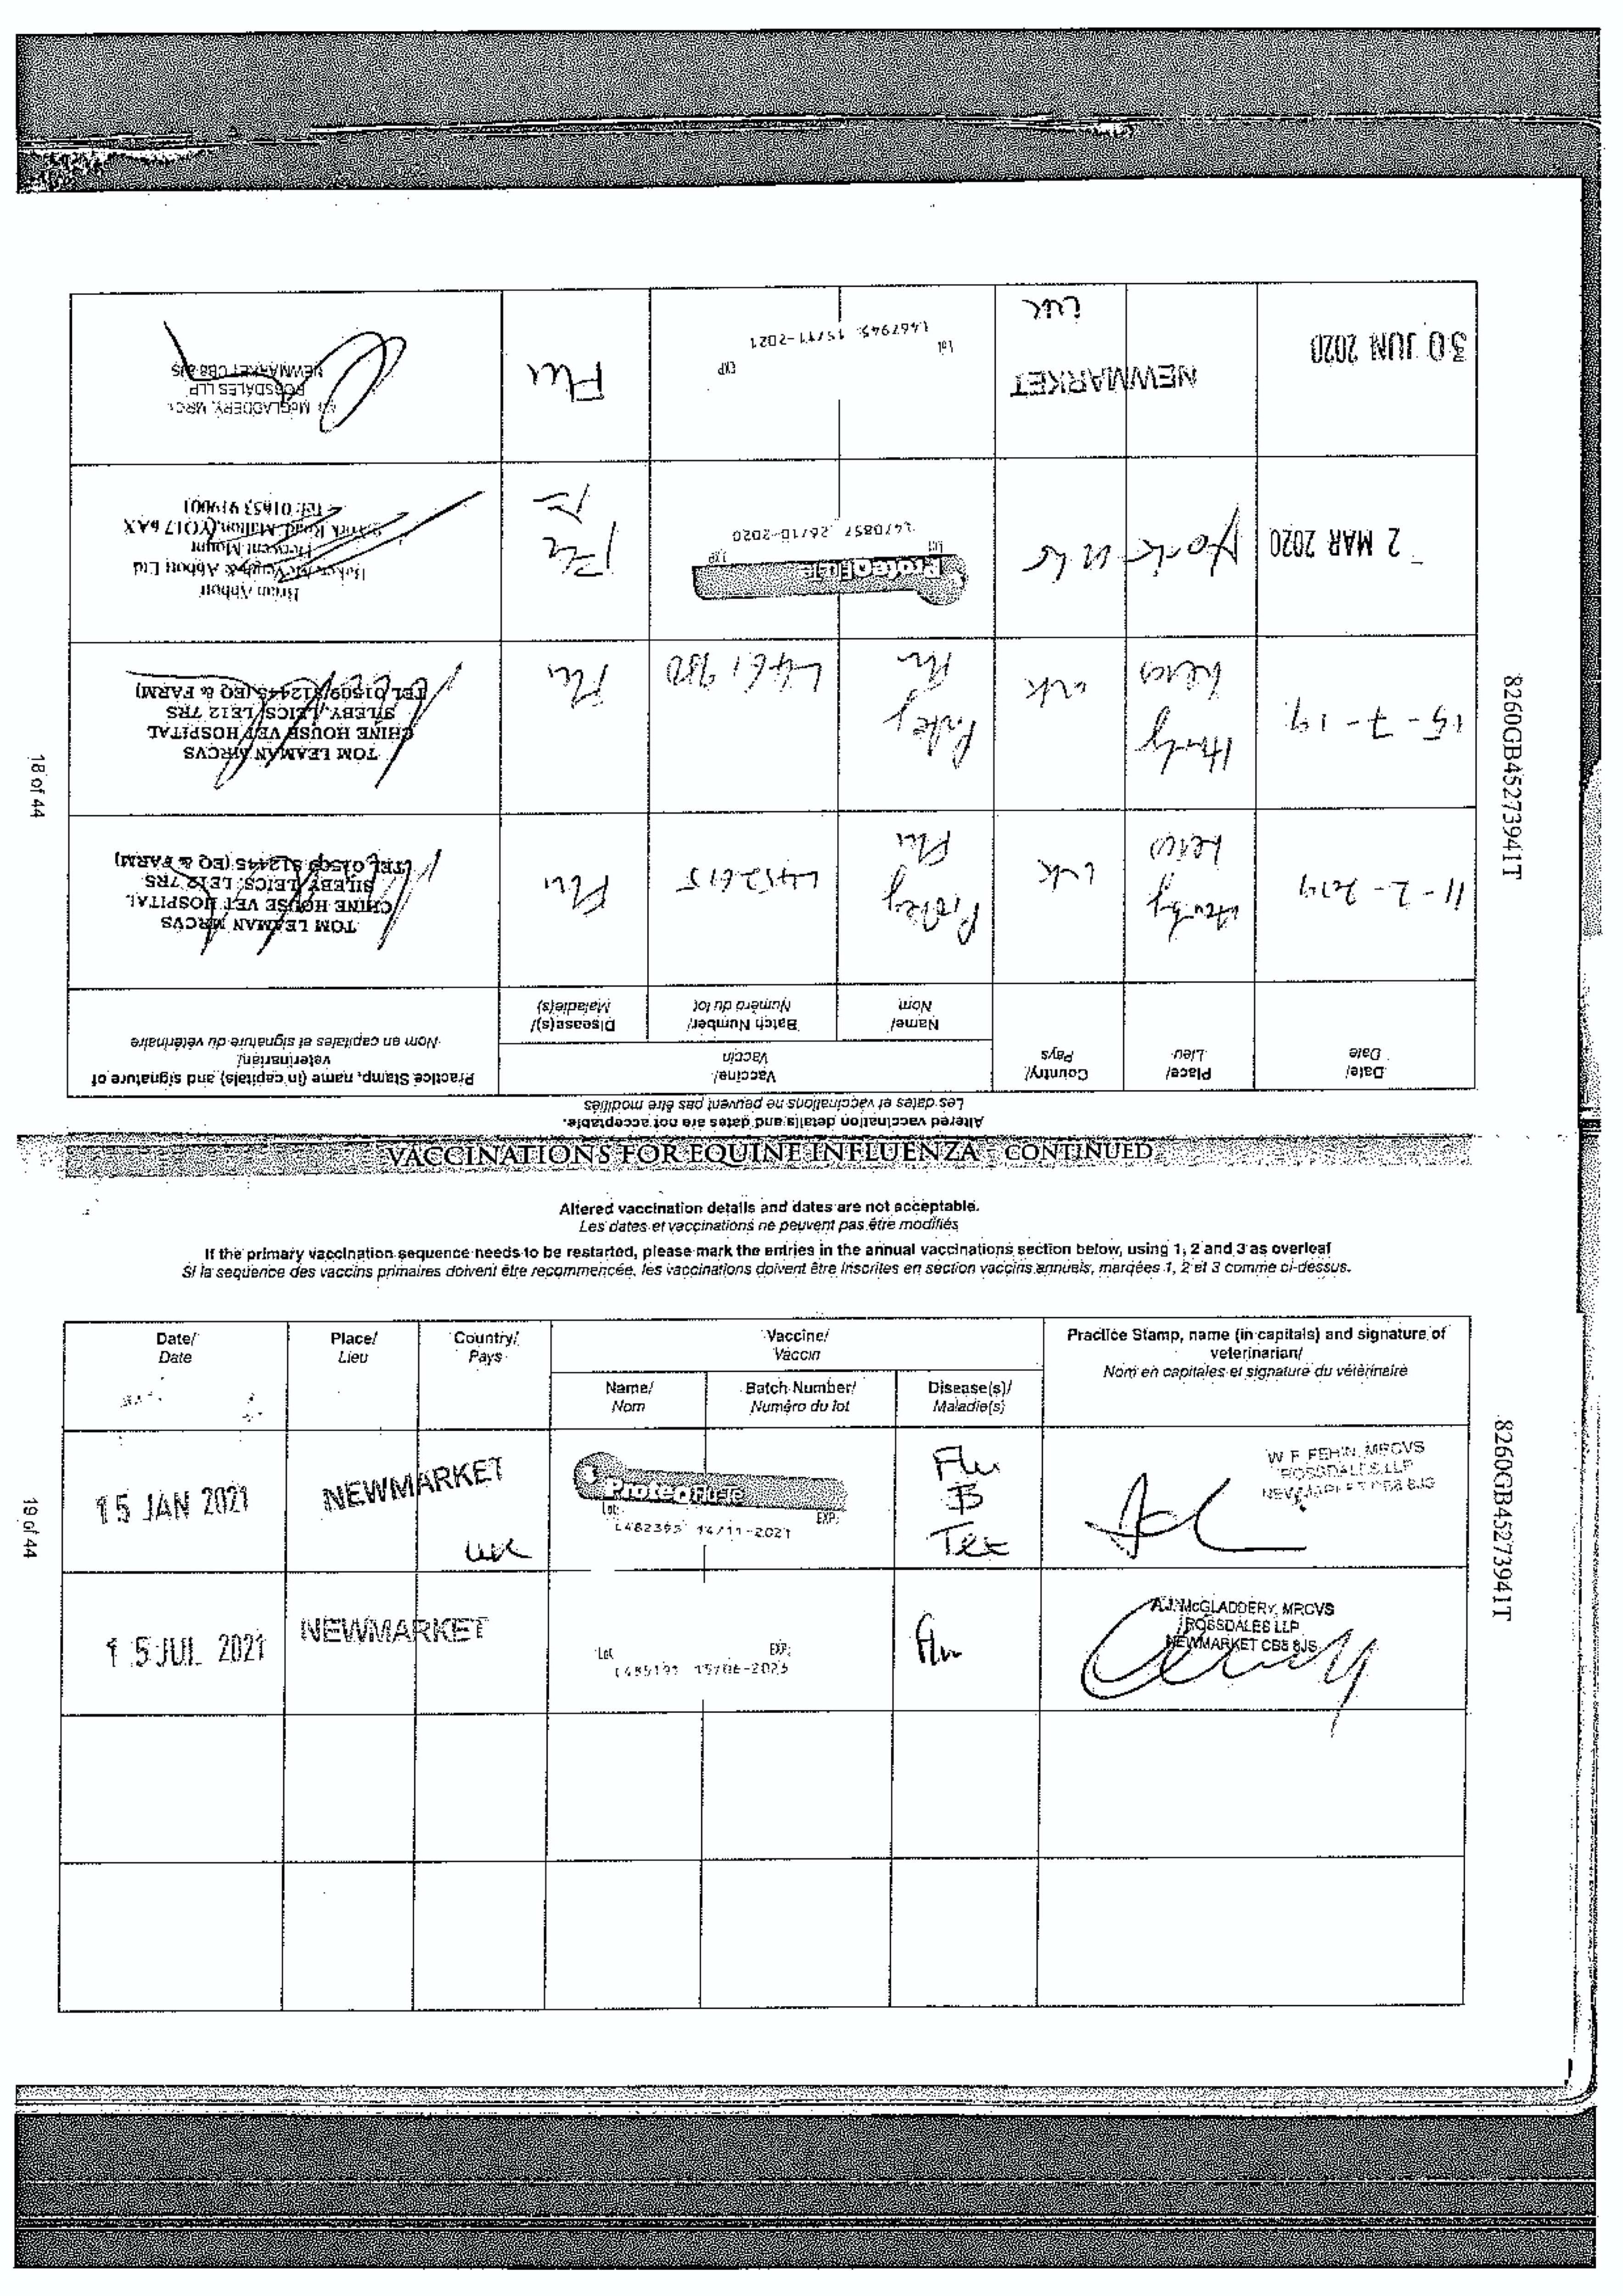 18 of 44
8260GB45273941T
Altered vaccination details and dates are not acceptable.
Les dates et vaccinations ne peuvent pas être modifiés
Date/
Date
Place/
Lieu
Country/
Pays
Vaccine/
Vaccin
Name/
Nom
Batch Number/
Numéro du lot
Disease(s)/
Maladie(s)
Practice Stamp, name (in capitals) and signature of
veterinarian/
Nom en capitales et signature du vétérinaire
11-2-2019
UK
Flu
L452615
Flu
TOM LEAMAN MRCVS
CHINE HOUSE VET HOSPITAL
SILEBY, LEICS, LE12 7RS
TEL 01509 812445 (EQ & FARM)
15-7-19
UK
Flu
L461980
Flu
TOM LEAMAN MRCVS
CHINE HOUSE VET HOSPITAL
SILEBY, LEICS, LE12 7RS
TEL 01509 812445 (EQ & FARM)
2 MAR 2020
York UK
ProteqFlu-Te
Lot EXP
L470857 26/10-2020
Brian Abbott
Derwent Mount
York Road, Malton, YO17 6AX
Tel: 01653 919001
30 JUN 2020
NEWMARKET
UK
Lot EXP
L467945 15/11-2021
Flu
McGLADDERY, MRCVS
ROSSDALES LLP
NEWMARKET CB8 8JS
VACCINATIONS FOR EQUINE INFLUENZA - CONTINUED
Altered vaccination details and dates are not acceptable.
Les dates et vaccinations ne peuvent pas être modifiés
If the primary vaccination sequence needs to be restarted, please mark the entries in the annual vaccinations section below, using 1, 2 and 3 as overleaf
Si la sequence des vaccins primaires doivent être recommencée, les vaccinations doivent être inscrites en section vaccins annuels, marqées 1, 2 et 3 comme ci-dessus.
Date/
Date
Place/
Lieu
Country/
Pays
Vaccine/
Vaccin
Name/
Nom
Batch Number/
Numéro du lot
Disease(s)/
Maladie(s)
Practice Stamp, name (in capitals) and signature of
veterinarian/
Nom en capitales et signature du vétérinaire
15 JAN 2021
NEWMARKET
UK
ProteqFlu-Te
Lot: EXP:
L482395 14/11-2021
Flu
Tet
W F FEHIN, MRCVS
ROSSDALES LLP
NEWMARKET CB8 8JS
15 JUL 2021
NEWMARKET
Lot EXP:
Flu
A.J. McGLADDERY, MRCVS
ROSSDALES LLP
NEWMARKET CB8 8JS
19 of 44
8260GB45273941T